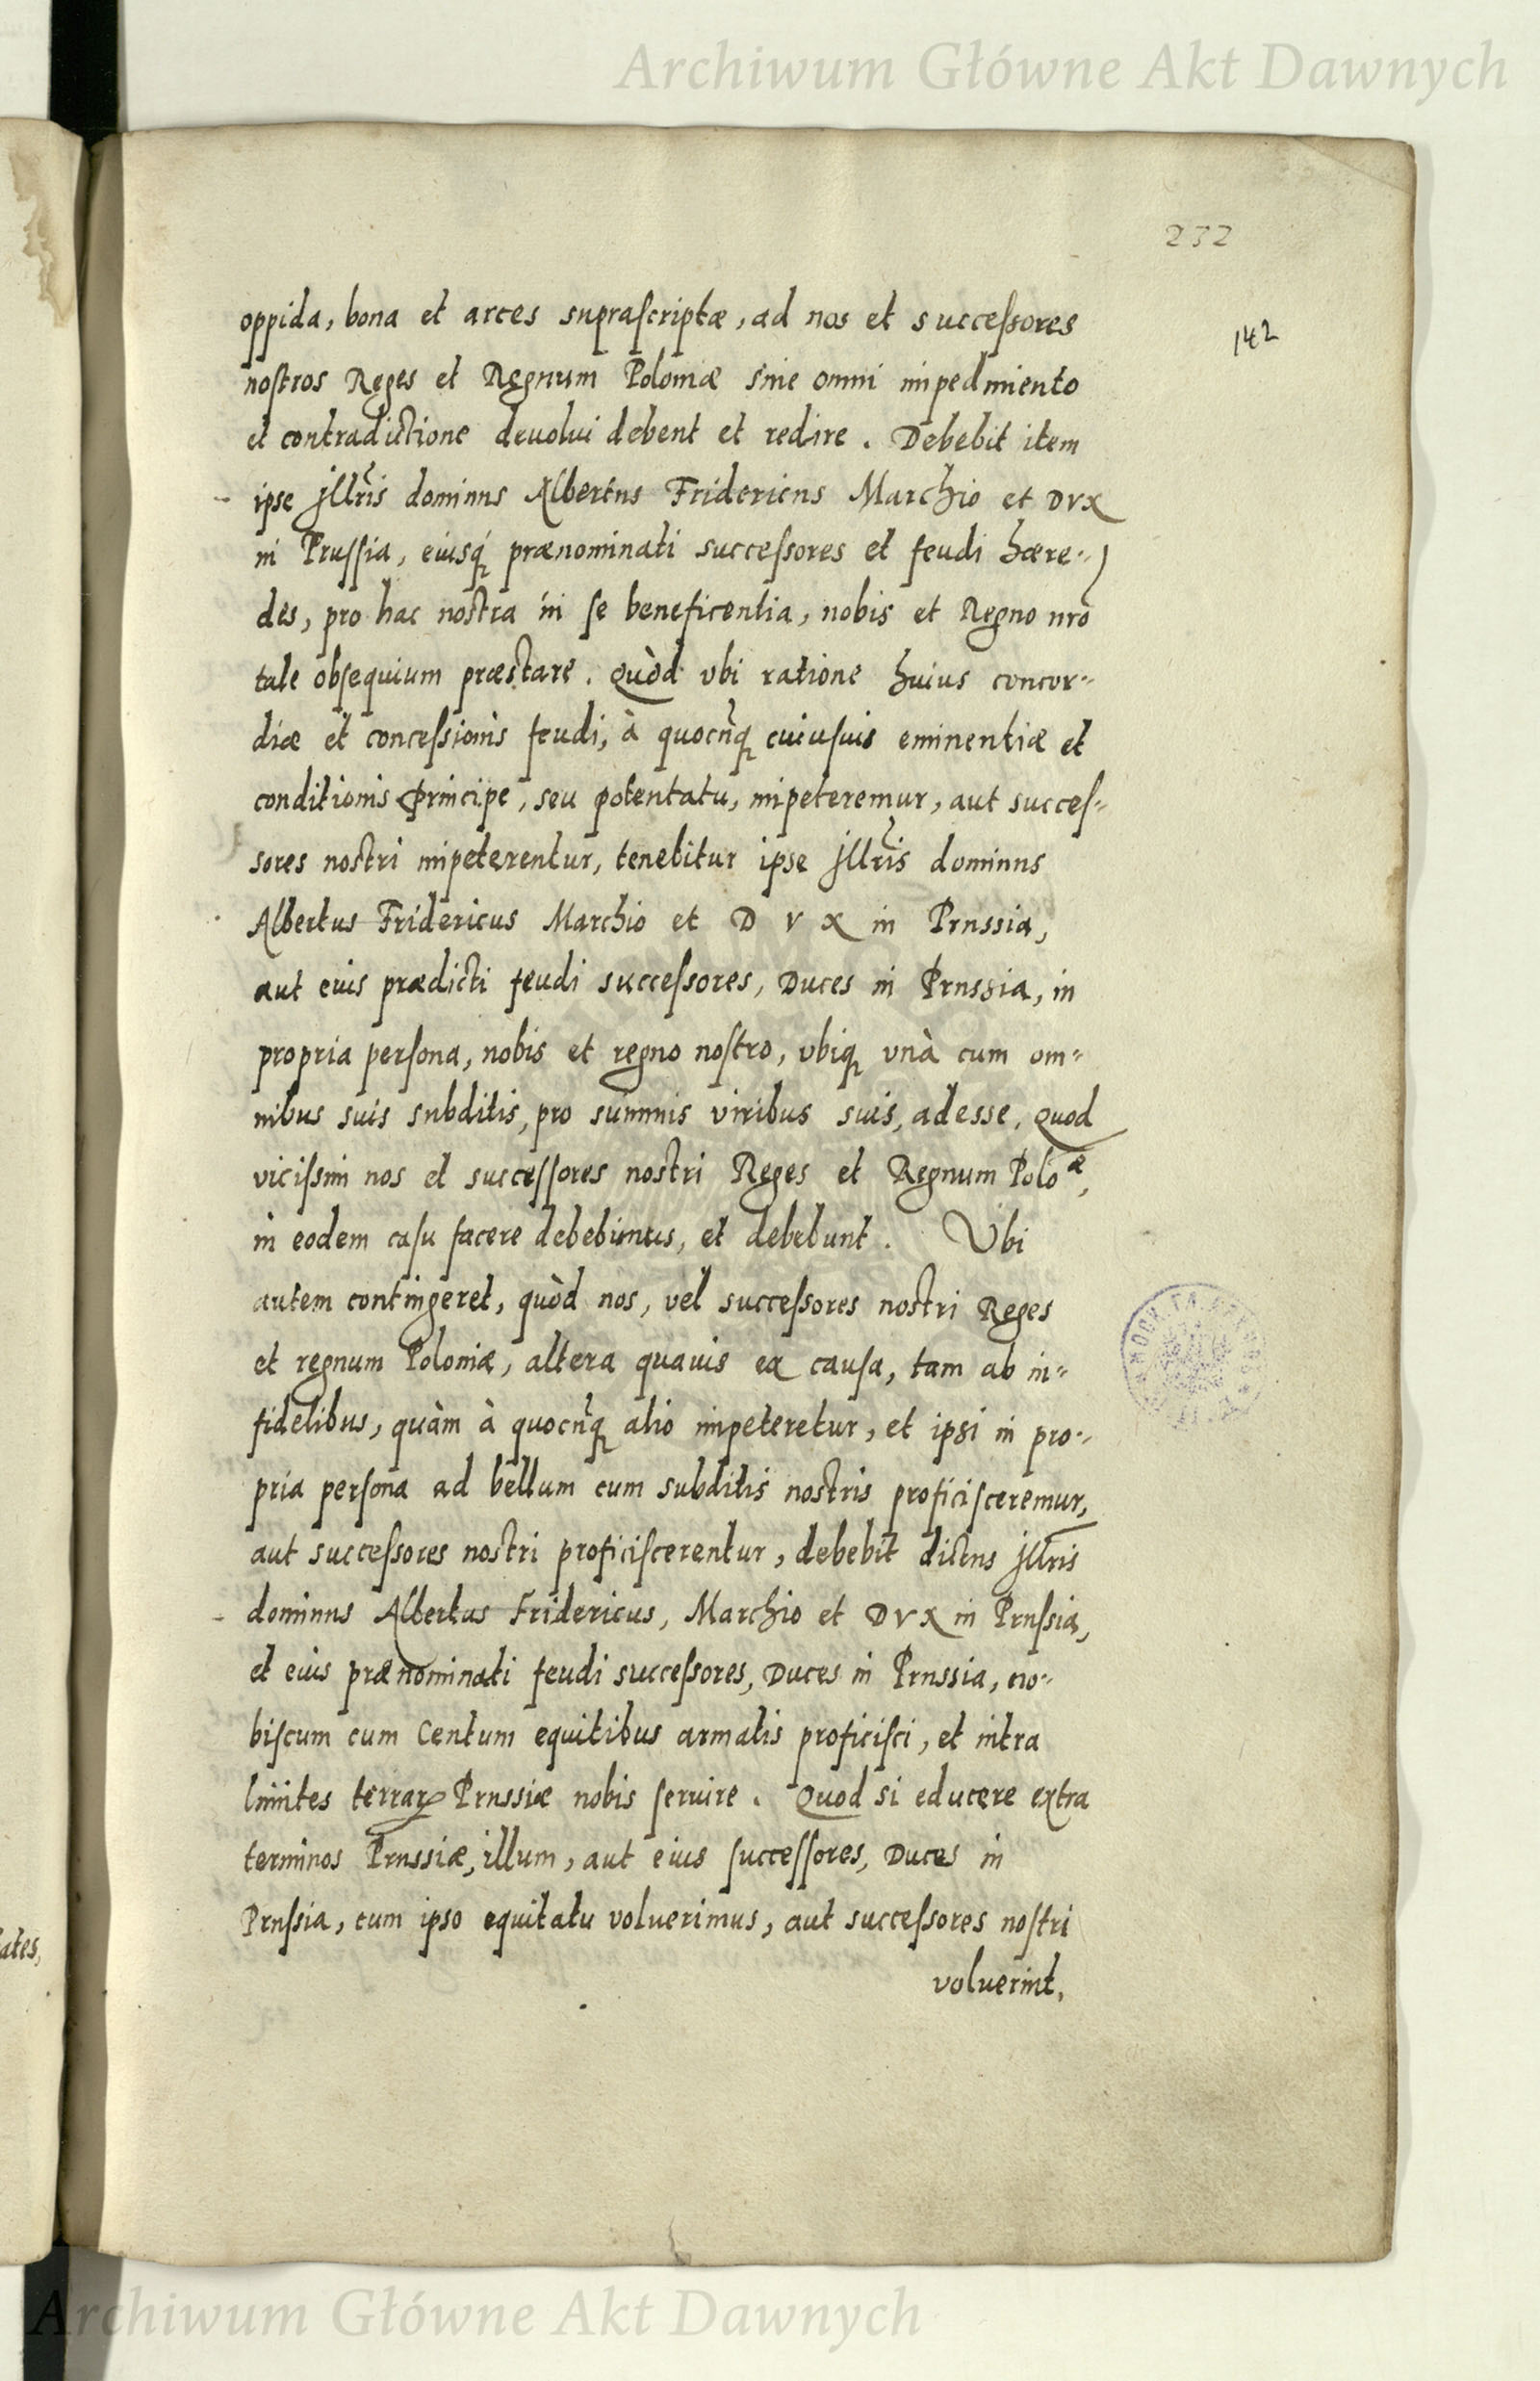 Archiwum Główne Akt Dawnych
232
142
oppida, bona et arces suprascriptæ, ad nos et successores
nostros Reges et Regnum Poloniæ sine omni impedimento
et contradictione deuolui debent et redire. Debebit item
ipse Jllris dominus Albertus Fridericus Marchio et DVX
in Prussia, eiusq́ prænominati successores et feudi hære-
des, pro hac nostra in se beneficentia, nobis et Regno nro
tale obsequium præstare. Quòd vbi ratione huius concor-
diæ et concessionis feudi, à quocnq cuiusuis eminentiæ et
conditionis Principe, seu potentatu, impeteremur, aut succes-
sores nostri impeterentur, tenebitur ipse Jllris dominus
Albertus Fridericus Marchio et D V X in Prussia,
aut eius prædicti feudi successores, Duces in Prussia, in
propria persona, nobis et regno nostro, vbiq vnà cum om-
nibus suis subditis, pro summis viribus suis, adesse. Quod
vicissim nos et successores nostri Reges et Regnum Poloæ,
in eodem casu facere debebimus, et debebunt. Vbi
autem contingeret, quòd nos, vel successores nostri Reges
et regnum Poloniæ, altera quauis ex causa, tam ab in-
fidelibus, quàm à quocnq alio impeteretur, et ipsi in pro-
pria persona ad bellum cum subditis nostris proficisceremur,
aut successores nostri proficiscerentur, debebit dictus Jllris
dominus Albertus Fridericus, Marchio et DVX in Prussia,
et eius prænominati feudi successores, Duces in Prussia, no-
biscum cum Centum equitibus armatis proficisci, et intra
limites terrarꝝ Prussiæ nobis seruire. Quod si educere extra
terminos Prussiæ, illum, aut eius successores, Duces in
Prussia, cum ipso equitatu voluerimus, aut successores nostri
voluerint,
ates,
Archiwum Główne Akt Dawnych